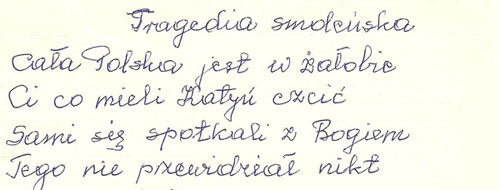 Tragedia smoleńska
Cała Polska jest w żałobie
Ci co mieli Katyń czcić
Sami się spotkali z Bogiem
Tego nie przewidział nikt